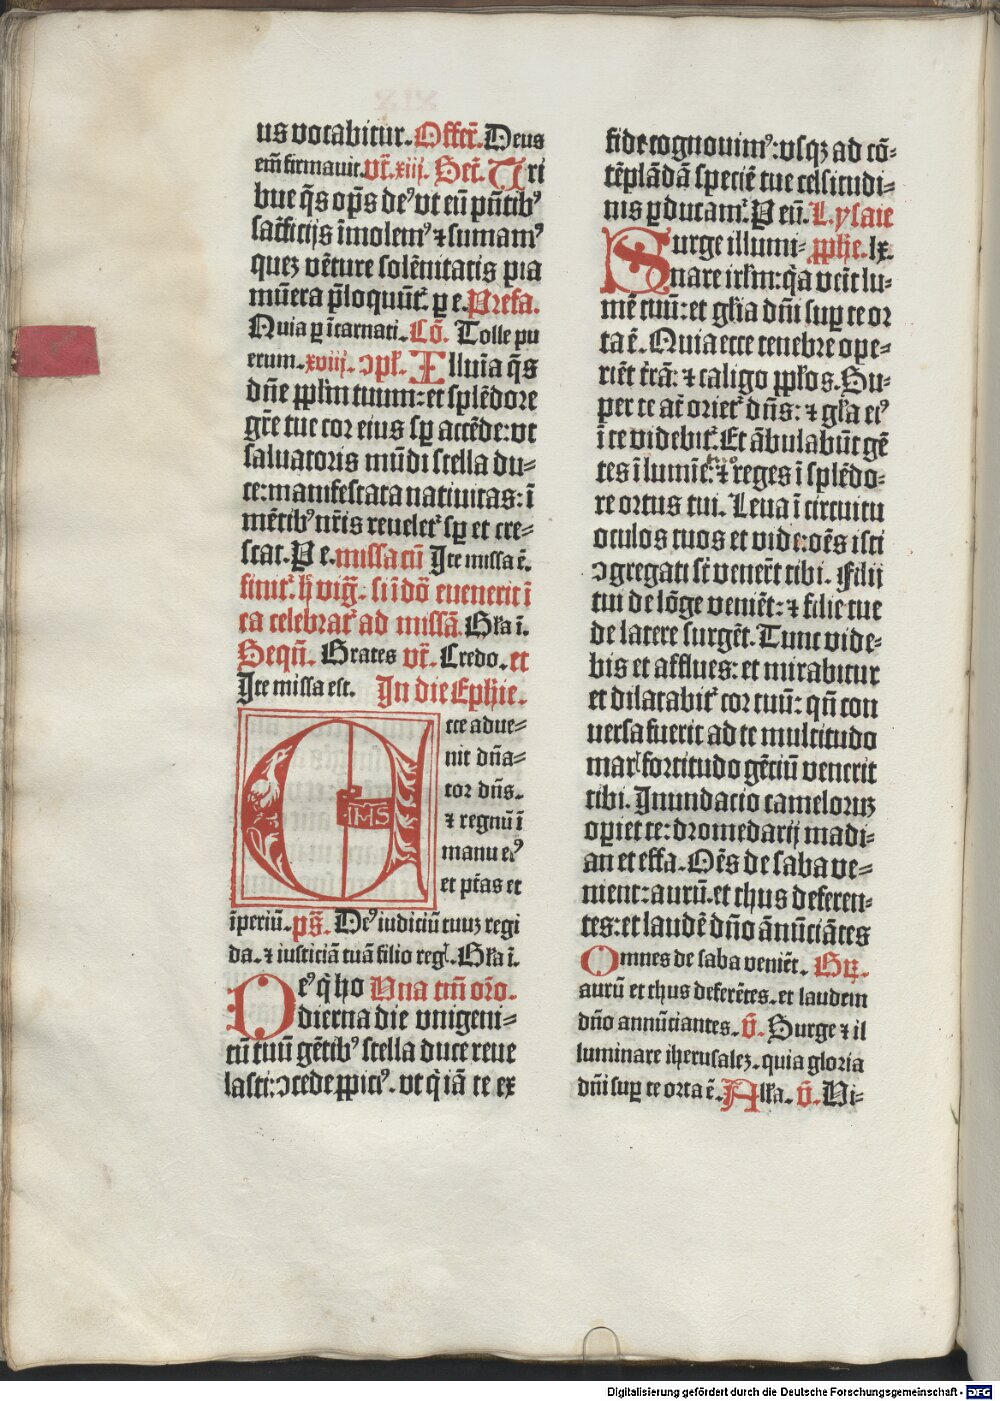 us vocabitur. Offert̃. Deus
em̄ firmauit. vt̃. xiii. Secr̃. Tri
bue q̄s op̄s deꝰ vt eū p̄ntibꝰ
sac̄ficijs īmolemꝰ ⁊ sumamꝰ
quez vēture solēnitatis pia
mūera p̄loquūt̃. ꝑ e. Prefa.
Quia ꝑ īcarnati. Cō. Tolle pu
erum. xviii. ↄpl̃. Illuīa q̄s
dn̄e ppl̄m tuum: et splēdore
gr̄e tue cor eius sꝑ accēde: vt
saluatoris mūdi stella du-
ce: manifestata natiuitas: ī
mētibꝰ nr̄is reuelet̃ sꝑ et cre-
scat. P e. missa cū Ite missa ē.
finit̃ h̄ vig̃. si īdō euenerit ī
ea celebrat̃ ad missā. Gl̄a ī.
Seqū. Grates vt̃. Credo. et
Ite missa est. In die Ephie.
Ecce adue-
nit dn̄a-
tor dn̄s.
⁊ regnū ī
manu eiꝰ
et ptās et
īperiū. ps̄. Deꝰ iudiciū tuuz regi
da. ⁊ iusticiā tuā filio reg̃. Gl̄a ī.
Deꝰ q̇ ho Vna cū or̄o.
dierna die vnigeni-
tū tuū gētibꝰ stella duce reue
lasti: ↄcede ꝓpiciꝰ. vt q̇ iā te ex
fide cognouimꝰ: vsqꝫ ad cō-
tēplādā speciē tue celsitudi-
nis ꝑducamr̃. P eū. L. ysaie
Surge illumi- pphe. lx.
nare irl̄m: q̇a veīt lu-
mē tuū: et gl̄ia dn̄i suꝑ te or
ta ē. Quia ecce tenebre ope-
riēt t̄rā: ⁊ caligo ppl̄os. Su-
per te aūt oriet̃ dn̄s: ⁊ gl̄a eiꝰ
ī te videbit̃. Et ābulabūt gē
tes ī lumīe: ⁊ reges ī splēdo-
re ortus tui. Leua ī circuitu
oculos tuos et vide: oēs isti
ↄgregati sūt venerūt tibi. Filij
tui de lōge veniēt: ⁊ filie tue
de latere surgēt. Tunc vide-
bis et afflues: et mirabitur
et dilatabit̃ cor tuū: qn̄ con
uersa fuerit ad te multitudo
mar̃ fortitudo gētiū venerit
tibi. Inundacio cameloruꝫ
opiet te: dromedarij madi-
an et effa. Oēs de saba ve-
nient: aurū et thus deferen-
tes: et laudē dn̄o ānūciātes
Omnes de saba veniēt. Gr̄.
aurū et thus deferētes. et laudem
dn̄o annūciantes. v̄. Surge ⁊ il
luminare iherusalez. quia gloria
dn̄i suꝑ te orta ē. All̄a. v̄. Vi-
Digitalisierung gefördert durch die Deutsche Forschungsgemeinschaft - DFG